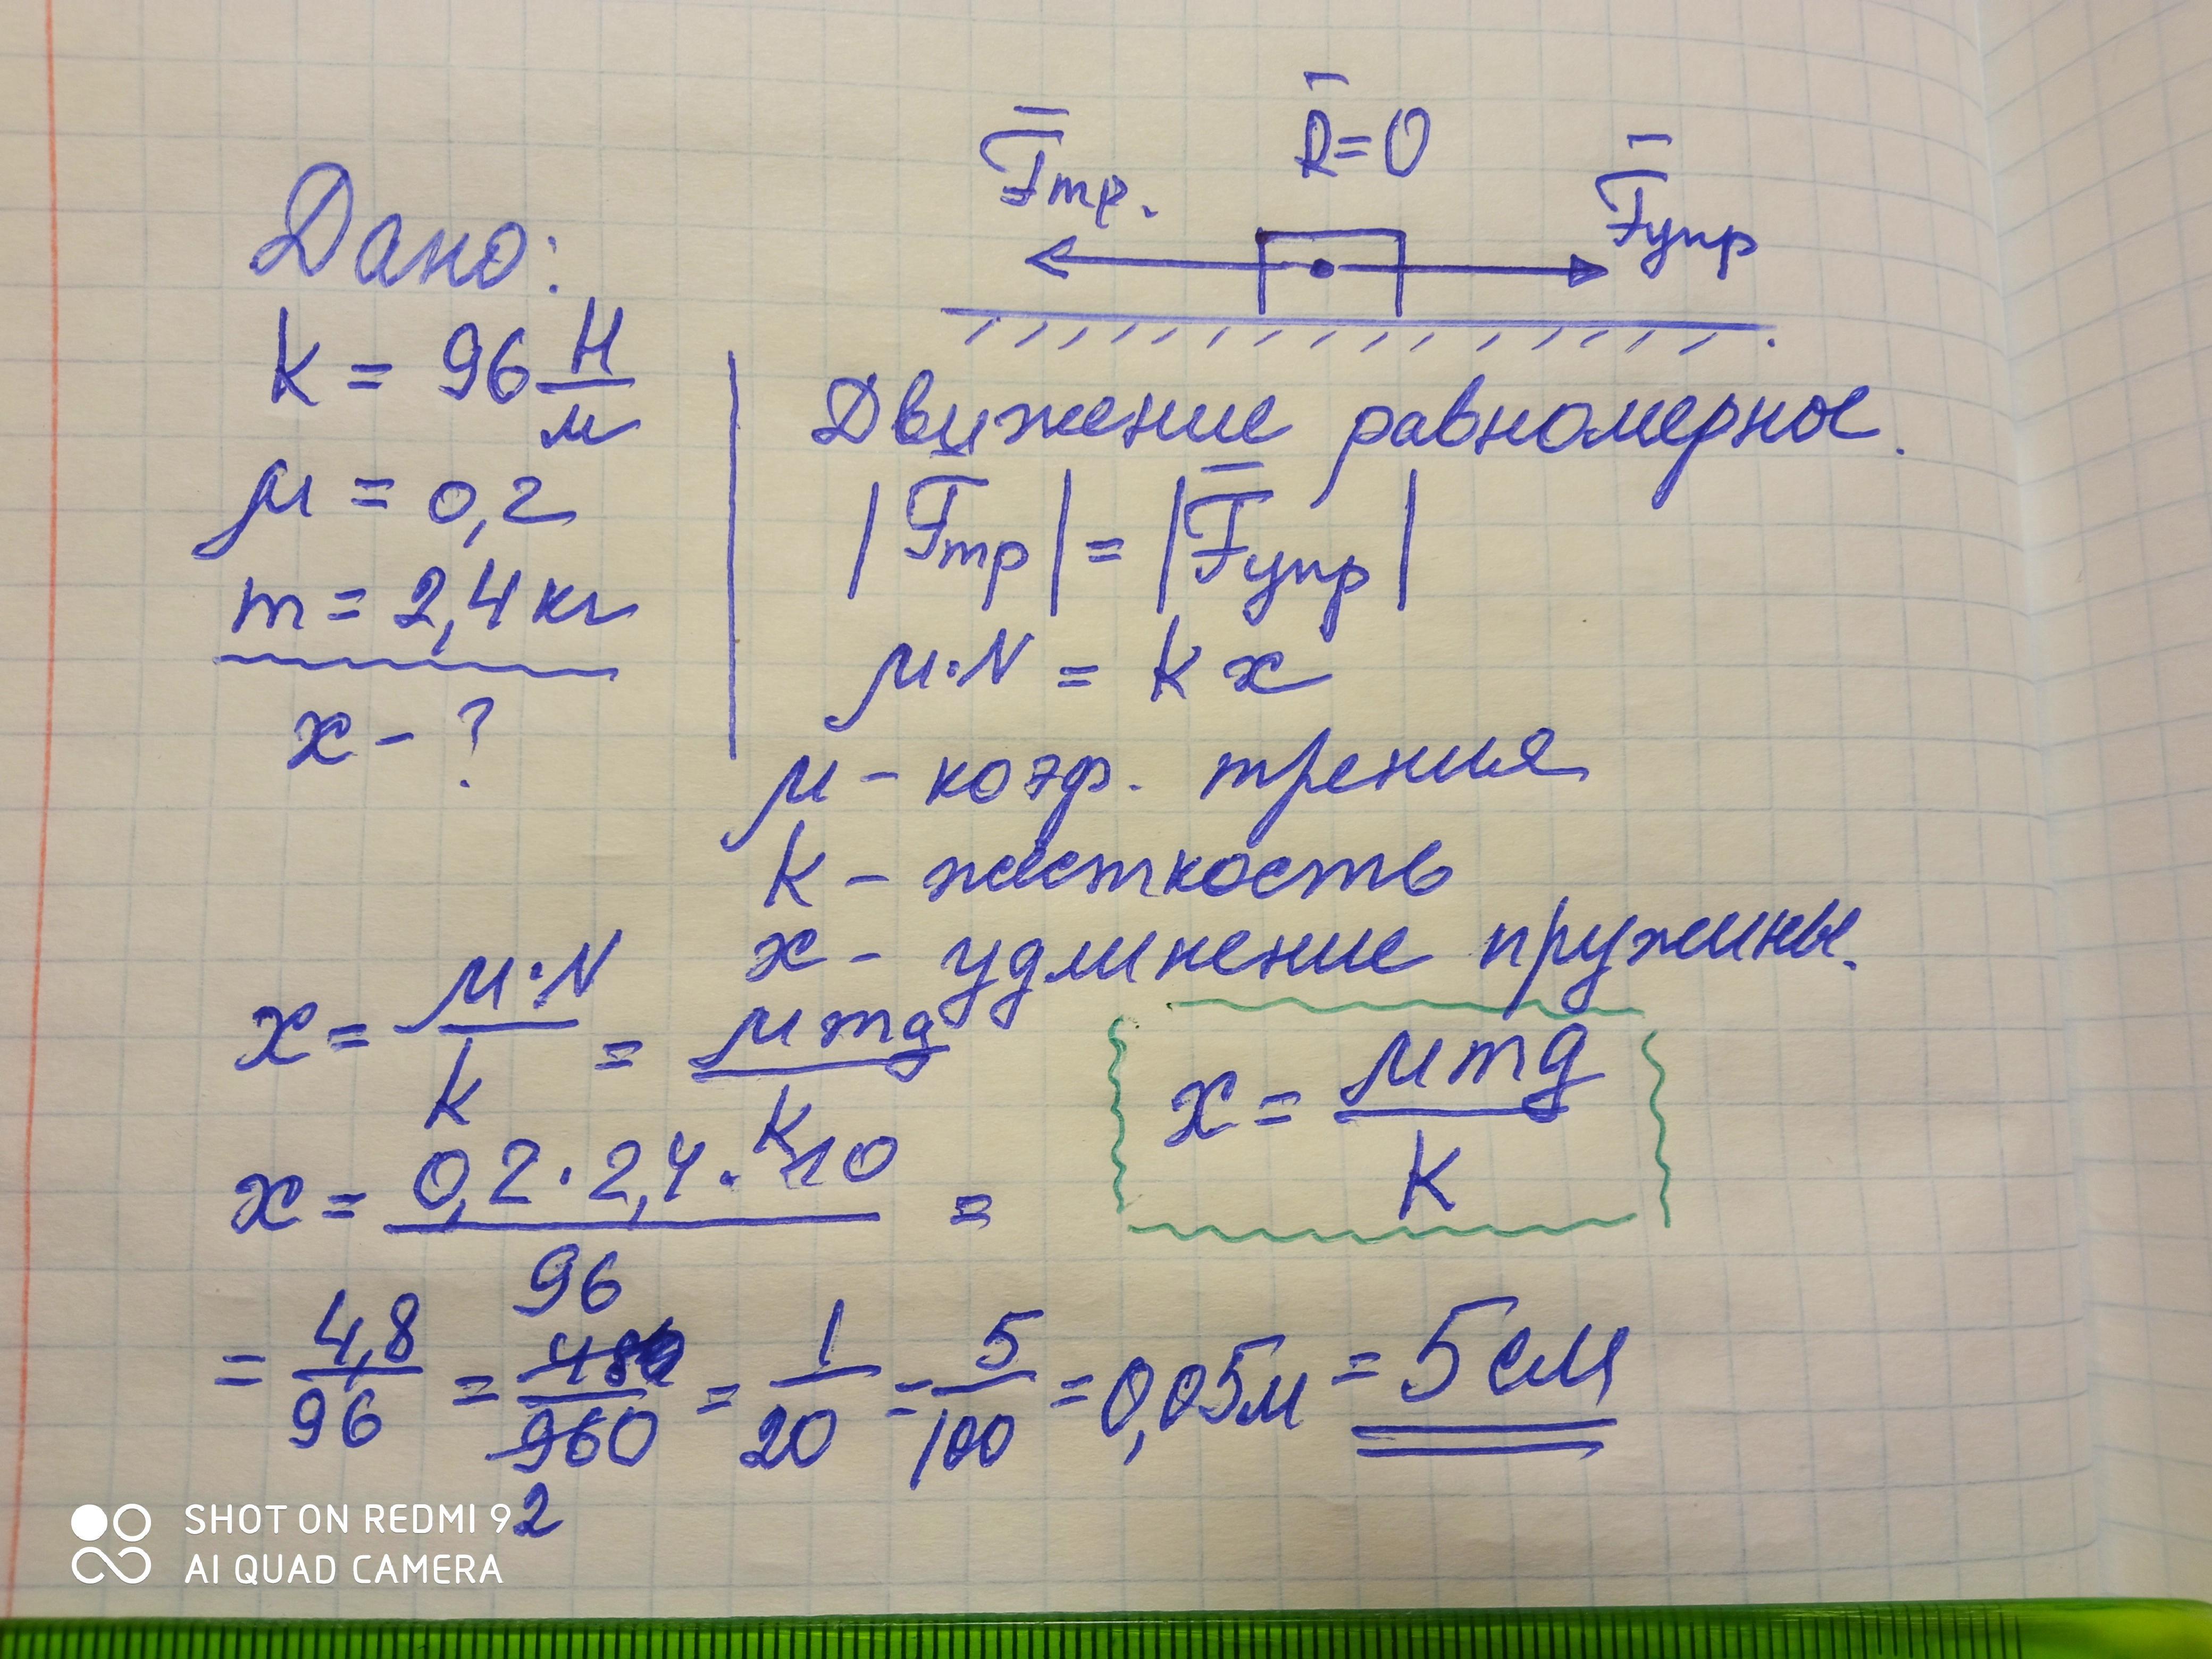 F̅тр.
R̅=0
F̅упр
Дано:
k = 96 Н/м
μ = 0,2
m = 2,4 кг
x - ?
Движение равномерное.
|F̅тр| = |F̅упр|
μ·N = kx
μ – коэф. трения
k – жесткость
x – удлинение пружины.
x = μ·N/k = μmg/k
x = μmg/k
x = 0,2·2,4·10/96 =
= 4,8/96 = 48/960 = 1/20 = 5/100 = 0,05м = 5 см
2
SHOT ON REDMI 9
AI QUAD CAMERA